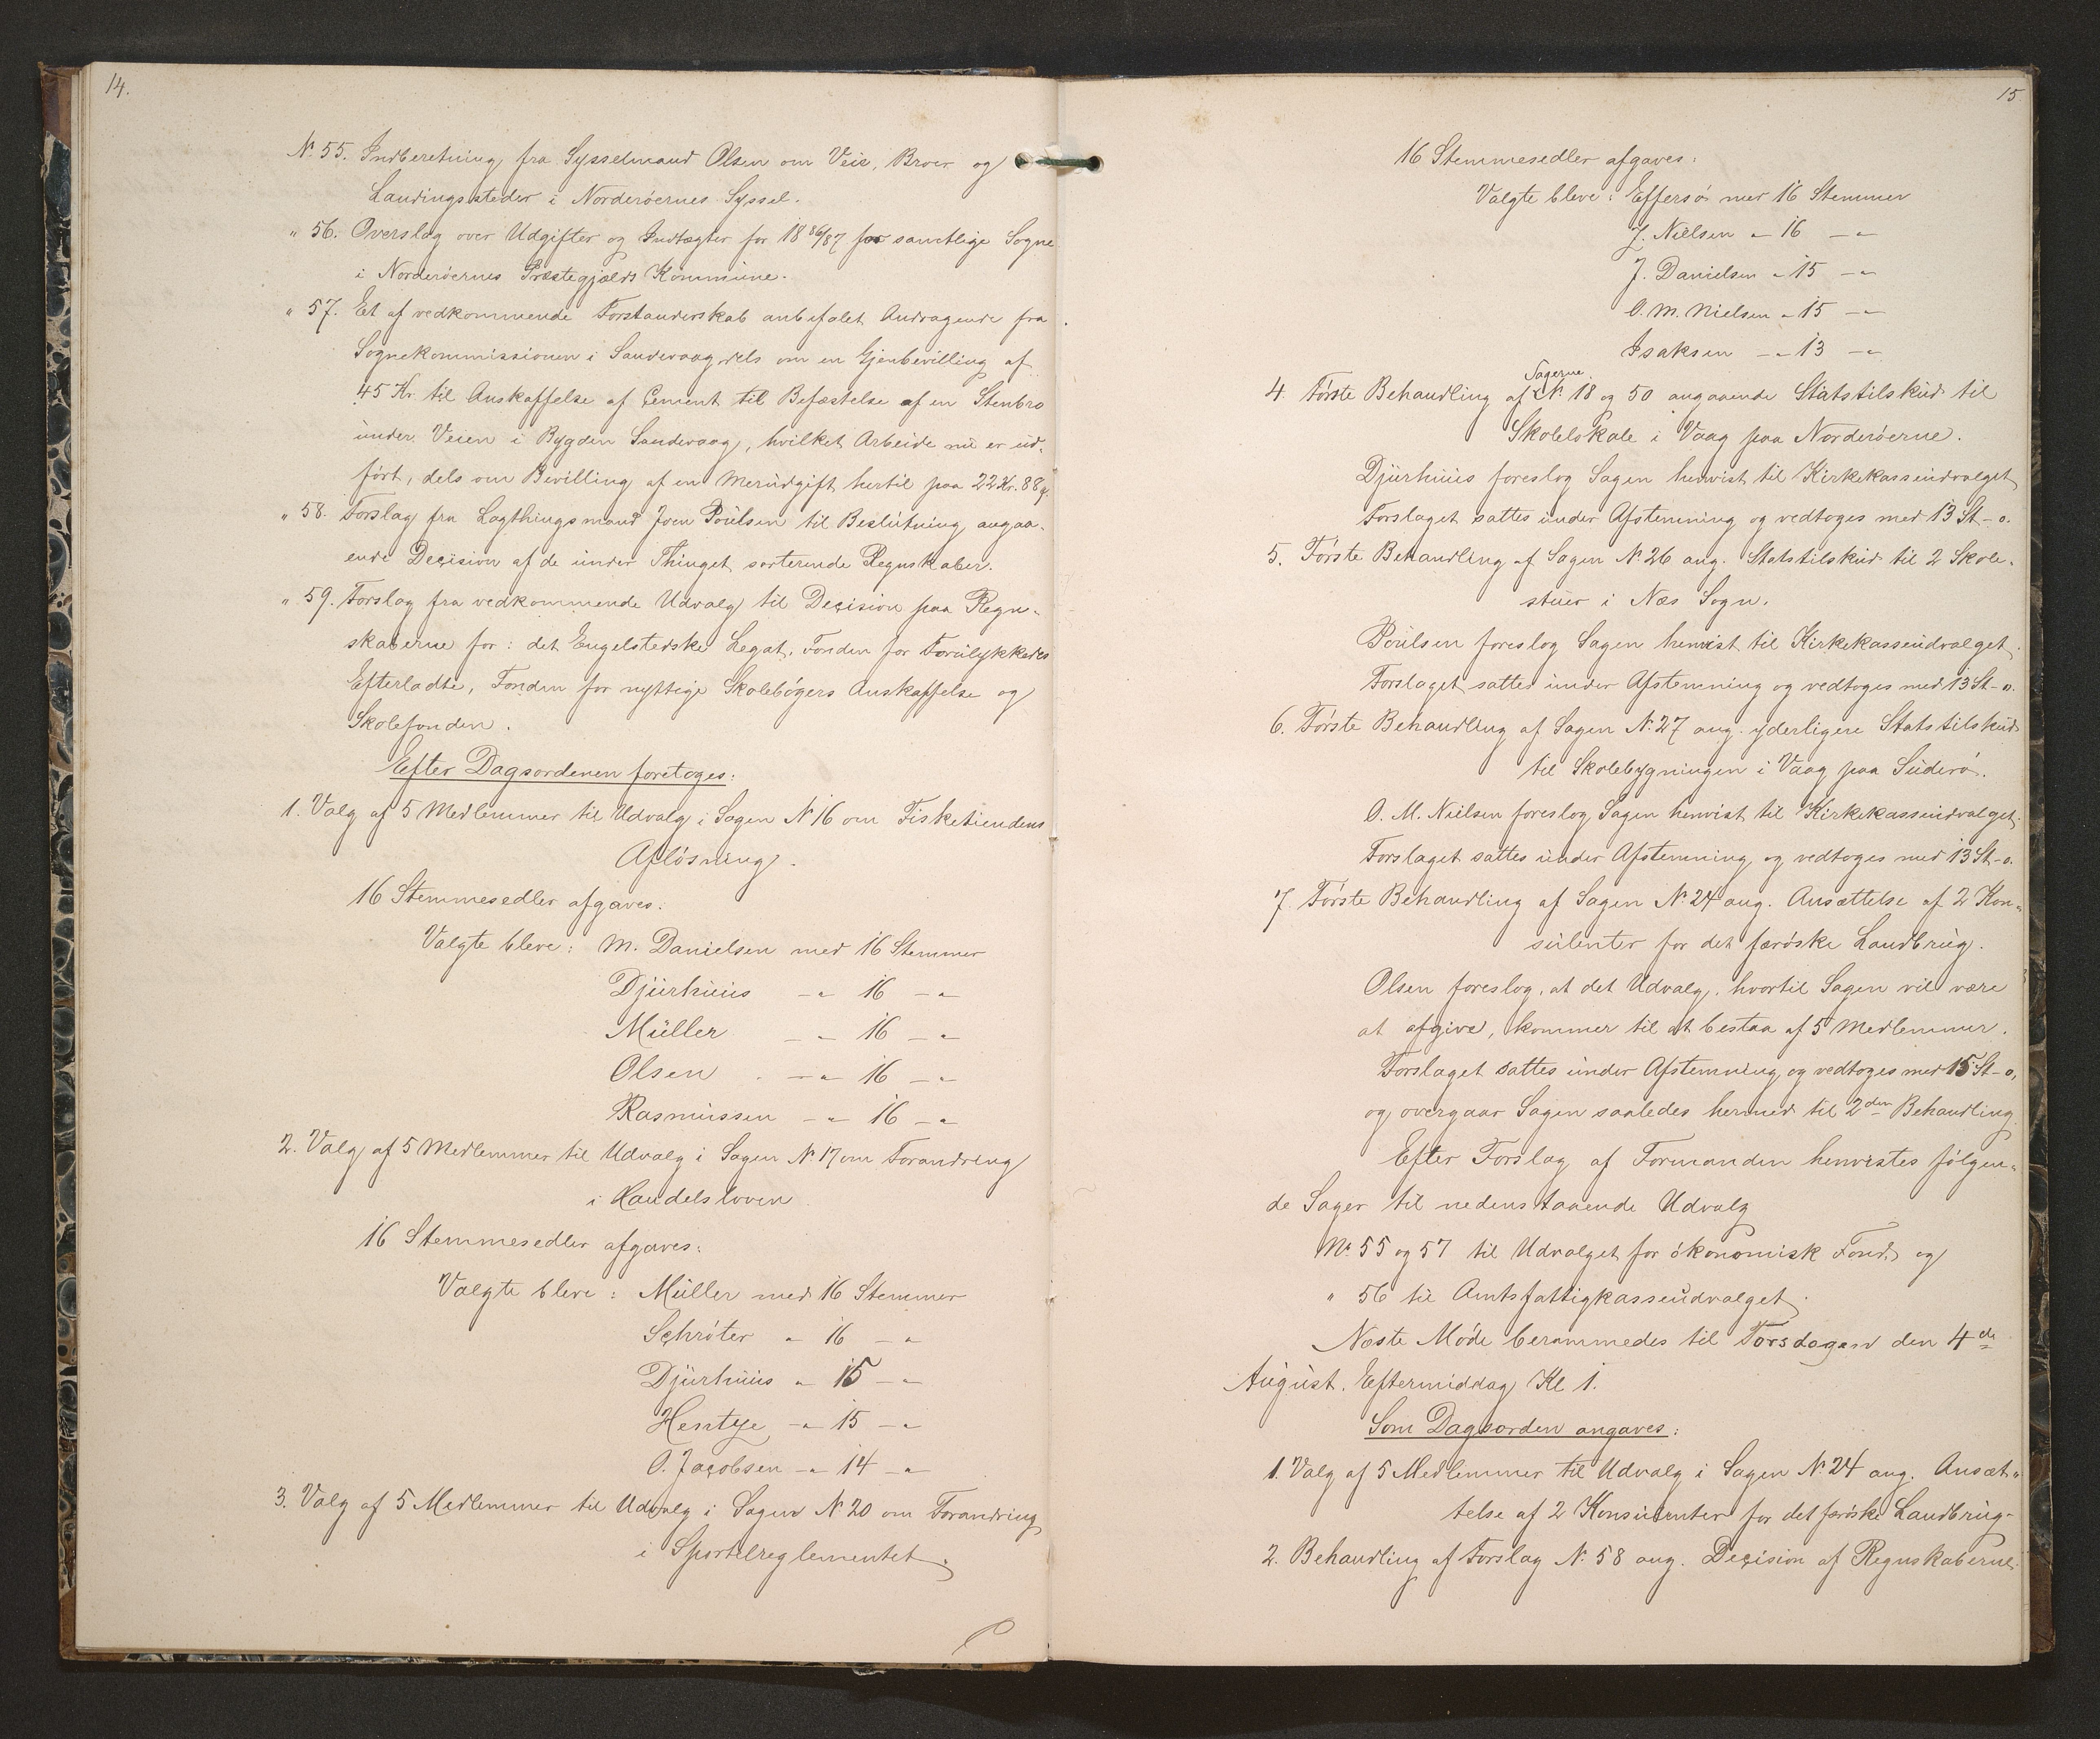 14.
№ 55. Indberetning fra Sysselmand Olsen om Veie, Broer og
Landingssteder i Norderöernes Syssel.
" 56. Overslag over Udgifter og Indtægter for 1886/87 for samtlige Sogne
i Norderöernes Præstegjælds Kommune.
" 57. Et af vedkommende Forstanderskab anbefalet Andragende fra
Sognekommissionen i Sandevaag dels om en Gjenbevilling af
45 Kr. til Anskaffelse af Cement til Befæstelse af en Stenbro
under Veien i Bygden Sandevaag, hvilket Arbeide nu er ud-
fört, dels om Bevilling af en Merudgift hertil paa 22 Kr. 88 Ø.
" 58. Forslag fra Lagthingsmand Joen Poulsen til Beslutning angaa-
ende Decision af de under Thinget sorterende Regnskaber.
" 59. Forslag fra vedkommende Udvalg til Decision paa Regn-
skaberne for: det Engelstedske Legat, Fonden for Forulykkedes
Efterladte, Fonden for nyttige Skolebögers Anskaffelse og
Skolefonden.
Efter Dagsordenen foretoges:
1. Valg af 5 Medlemmer til Udvalg i Sagen № 16 om Fisketiendens
Aflösning.
16 Stemmesedler afgaves:
Valgte bleve: M. Danielsen med 16 Stemmer
Djurhuus — " 16 — "
Müller — " 16 — "
Olsen — " 16 — "
Rasmussen — " 16 — "
2. Valg af 5 Medlemmer til Udvalg i Sagen № 17 om Forandring
i Handelsloven
16 Stemmesedler afgaves:
Valgte bleve: Müller med 16 Stemmer
Schröter " 16 — "
Djurhuus " 15 — "
Hentze — " 15 — "
O. Jacobsen — " 14 — "
3. Valg af 5 Medlemmer til Udvalg i Sagen № 20 om Forandring
i Sportelreglementet.
15
16 Stemmesedler afgaves:
Valgte bleve: Effersö med 16 Stemmer
J. Nielsen " 16 — "
J. Danielsen " 15 — "
O. M. Nielsen " 15 — "
Isaksen — " 13 — "
4. Förste Behandling af Sagerne № 18 og 50 angaaende Statstilskud til
Skolelokale i Vaag paa Norderöerne.
Djurhuus foreslog Sagen henvist til Kirkekasseudvalget
Forslaget sattes under Afstemning og vedtoges med 13 St-o.
5. Förste Behandling af Sagen № 26 ang. Statstilskud til 2 Skole-
stuer i Næs Sogn.
Poulsen foreslog Sagen henvist til Kirkekasseudvalget.
Forslaget sattes under Afstemning og vedtoges med 13 St-o.
6. Förste Behandling af Sagen № 27 ang. yderligere Statstilskud
til Skolebygningen i Vaag paa Suderö.
O. M. Nielsen foreslog Sagen henvist til Kirkekasseudvalget.
Forslaget sattes under Afstemning og vedtoges med 13 St-o.
7. Förste Behandling af Sagen № 24 ang. Ansættelse af 2 Kon-
sulenter for det færöske Landbrug.
Olsen foreslog, at det Udvalg, hvortil Sagen vil være
at afgive, kommer til at bestaa af 5 Medlemmer.
Forslaget sattes under Afstemning og vedtoges med 15 St-o,
og overgaar Sagen saaledes hermed til 2den Behandling.
Efter Forslag af Formanden henvistes fölgen-
de Sager til nedenstaaende Udvalg
№ 55 og 57 til Udvalget for ökonomisk Fond, og
" 56 til Amtsfattigkasseudvalget.
Næste Möde berammedes til Torsdagen den 4de
August. Eftermiddag Kl 1.
Som Dagsorden angaves:
1. Valg af 5 Medlemmer til Udvalg i Sagen № 24 ang. Ansæt-
telse af 2 Konsulenter for det færöske Landbrug.
2. Behandling af Forslag № 58 ang. Decision af Regnskaberne